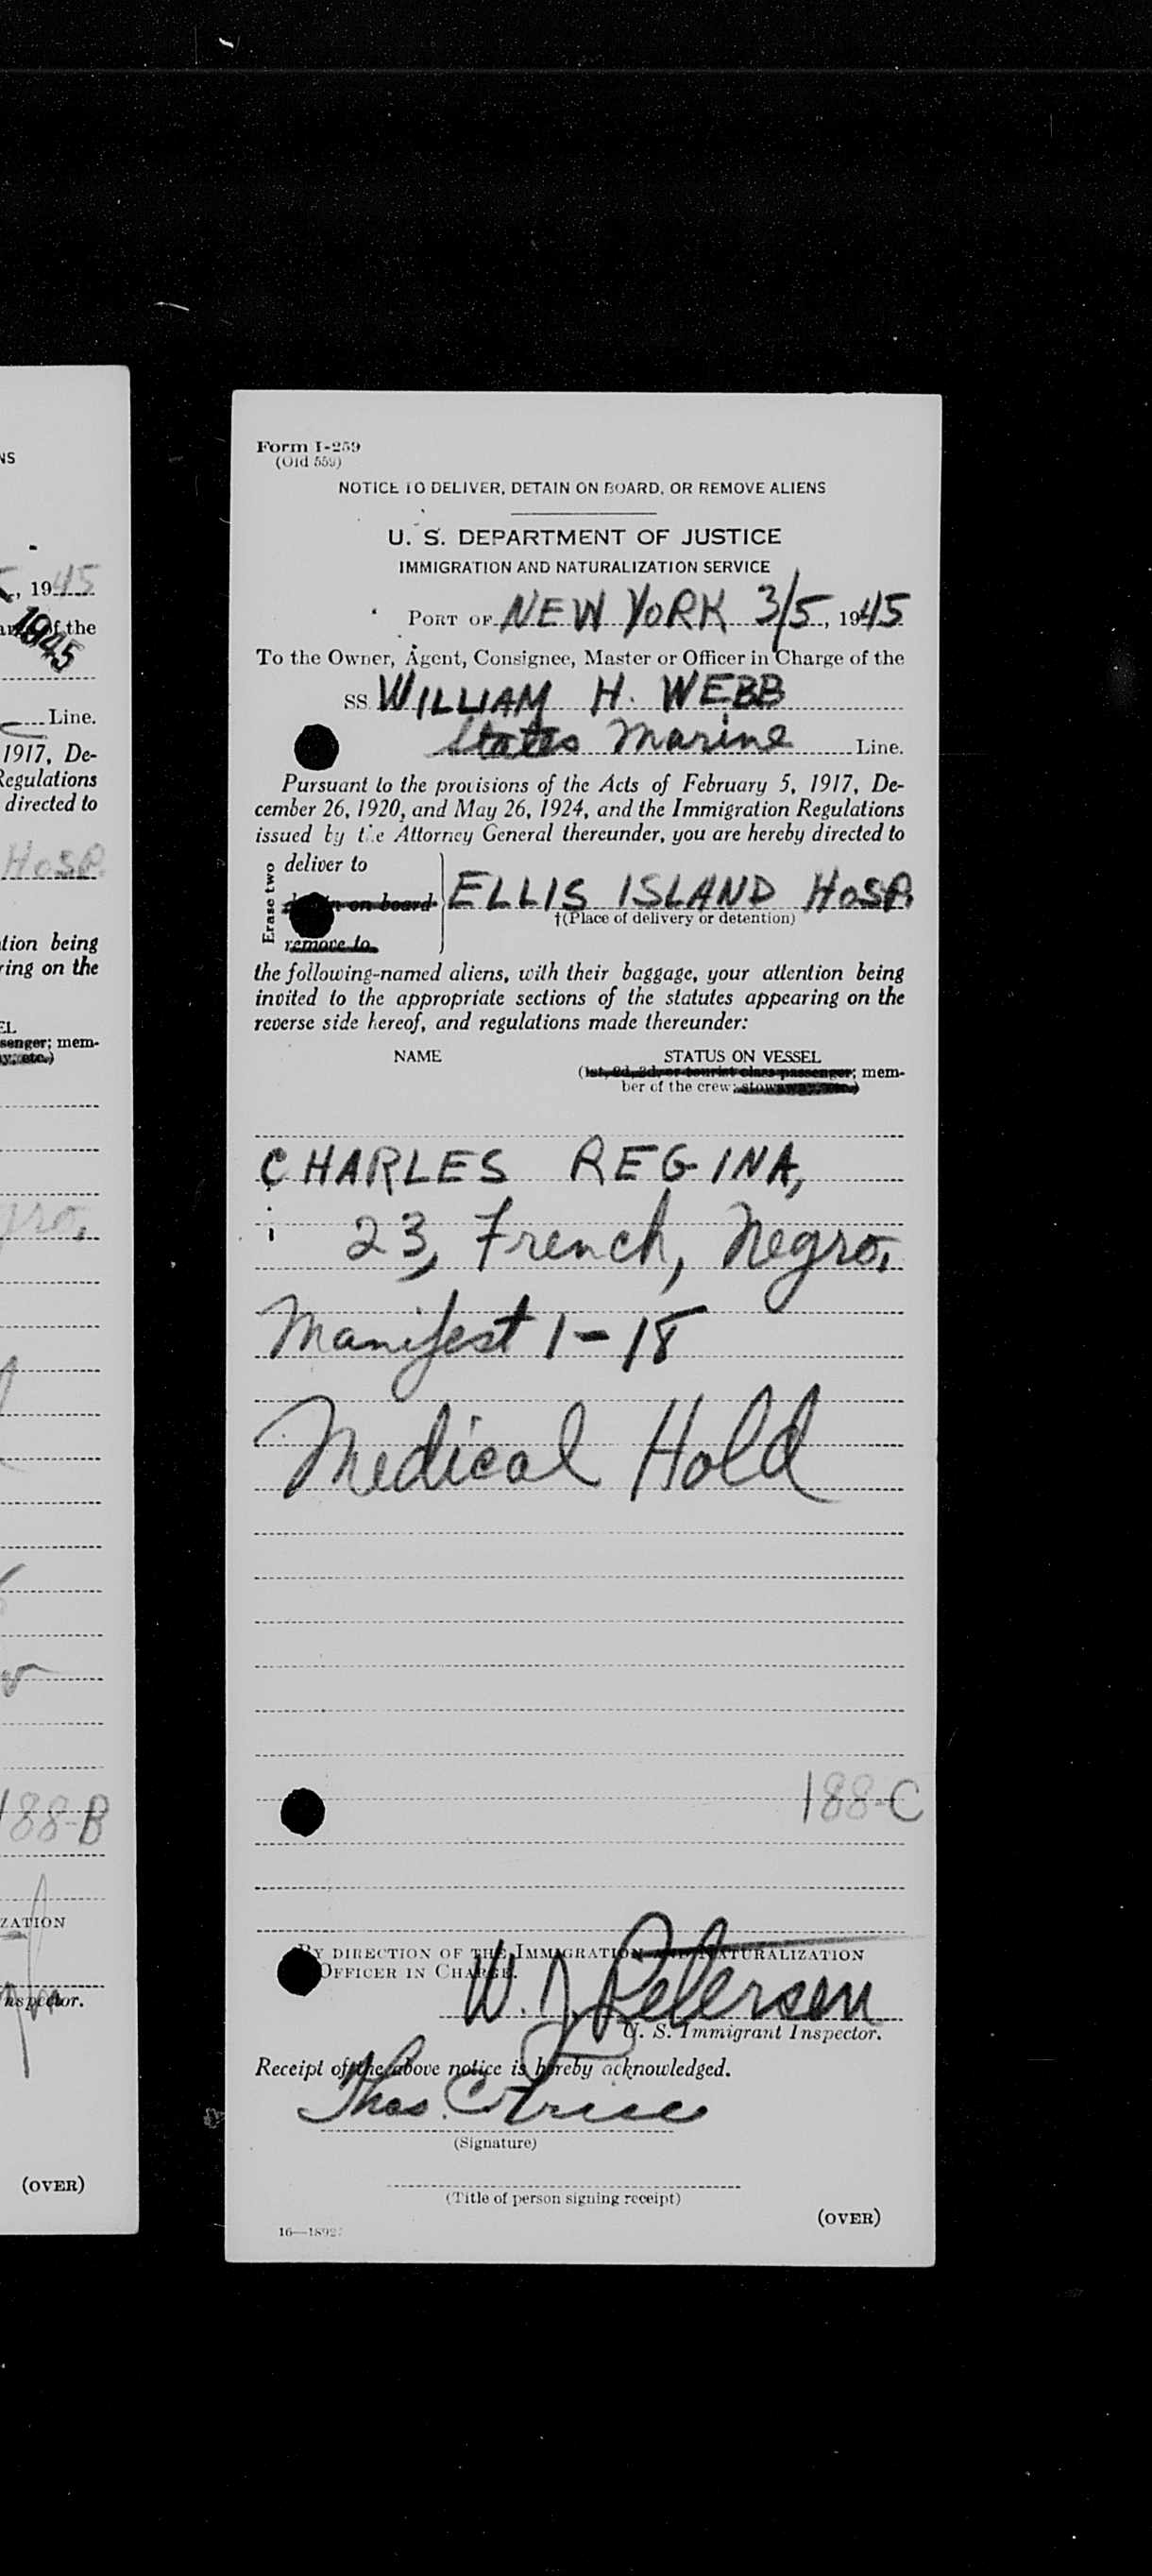 NS
, 1945
of the
1945
Line.
1917, De-
Regulations
directed to
HOSP.
tion being
ring on the
EL
senger; mem-
y, etc.)
gro,
188-B
ZATION
nspector.
(OVER)
Form I-259
(Old 559)
NOTICE TO DELIVER, DETAIN ON BOARD, OR REMOVE ALIENS
U. S. DEPARTMENT OF JUSTICE
IMMIGRATION AND NATURALIZATION SERVICE
PORT OF NEW YORK 3/5, 1945
To the Owner, Agent, Consignee, Master or Officer in Charge of the
SS WILLIAM H. WEBB
States Marine Line.
Pursuant to the provisions of the Acts of February 5, 1917, De-
cember 26, 1920, and May 26, 1924, and the Immigration Regulations
issued by the Attorney General thereunder, you are hereby directed to
Erase two
deliver to
detain on board ELLIS ISLAND HOSP.
†(Place of delivery or detention)
remove to
the following-named aliens, with their baggage, your attention being
invited to the appropriate sections of the statutes appearing on the
reverse side hereof, and regulations made thereunder:
NAME STATUS ON VESSEL
(1st, 2d, 3d, or tourist class passenger; mem-
ber of the crew; stowaway, etc.)
CHARLES REGINA,
23, French, Negro,
Manifest 1-18
Medical Hold
188-C
BY DIRECTION OF THE IMMIGRATION AND NATURALIZATION
OFFICER IN CHARGE.
W. J. Petersen
U. S. Immigrant Inspector.
Receipt of the above notice is hereby acknowledged.
Thos. C.
(Signature)
(Title of person signing receipt)
(OVER)
16—1892